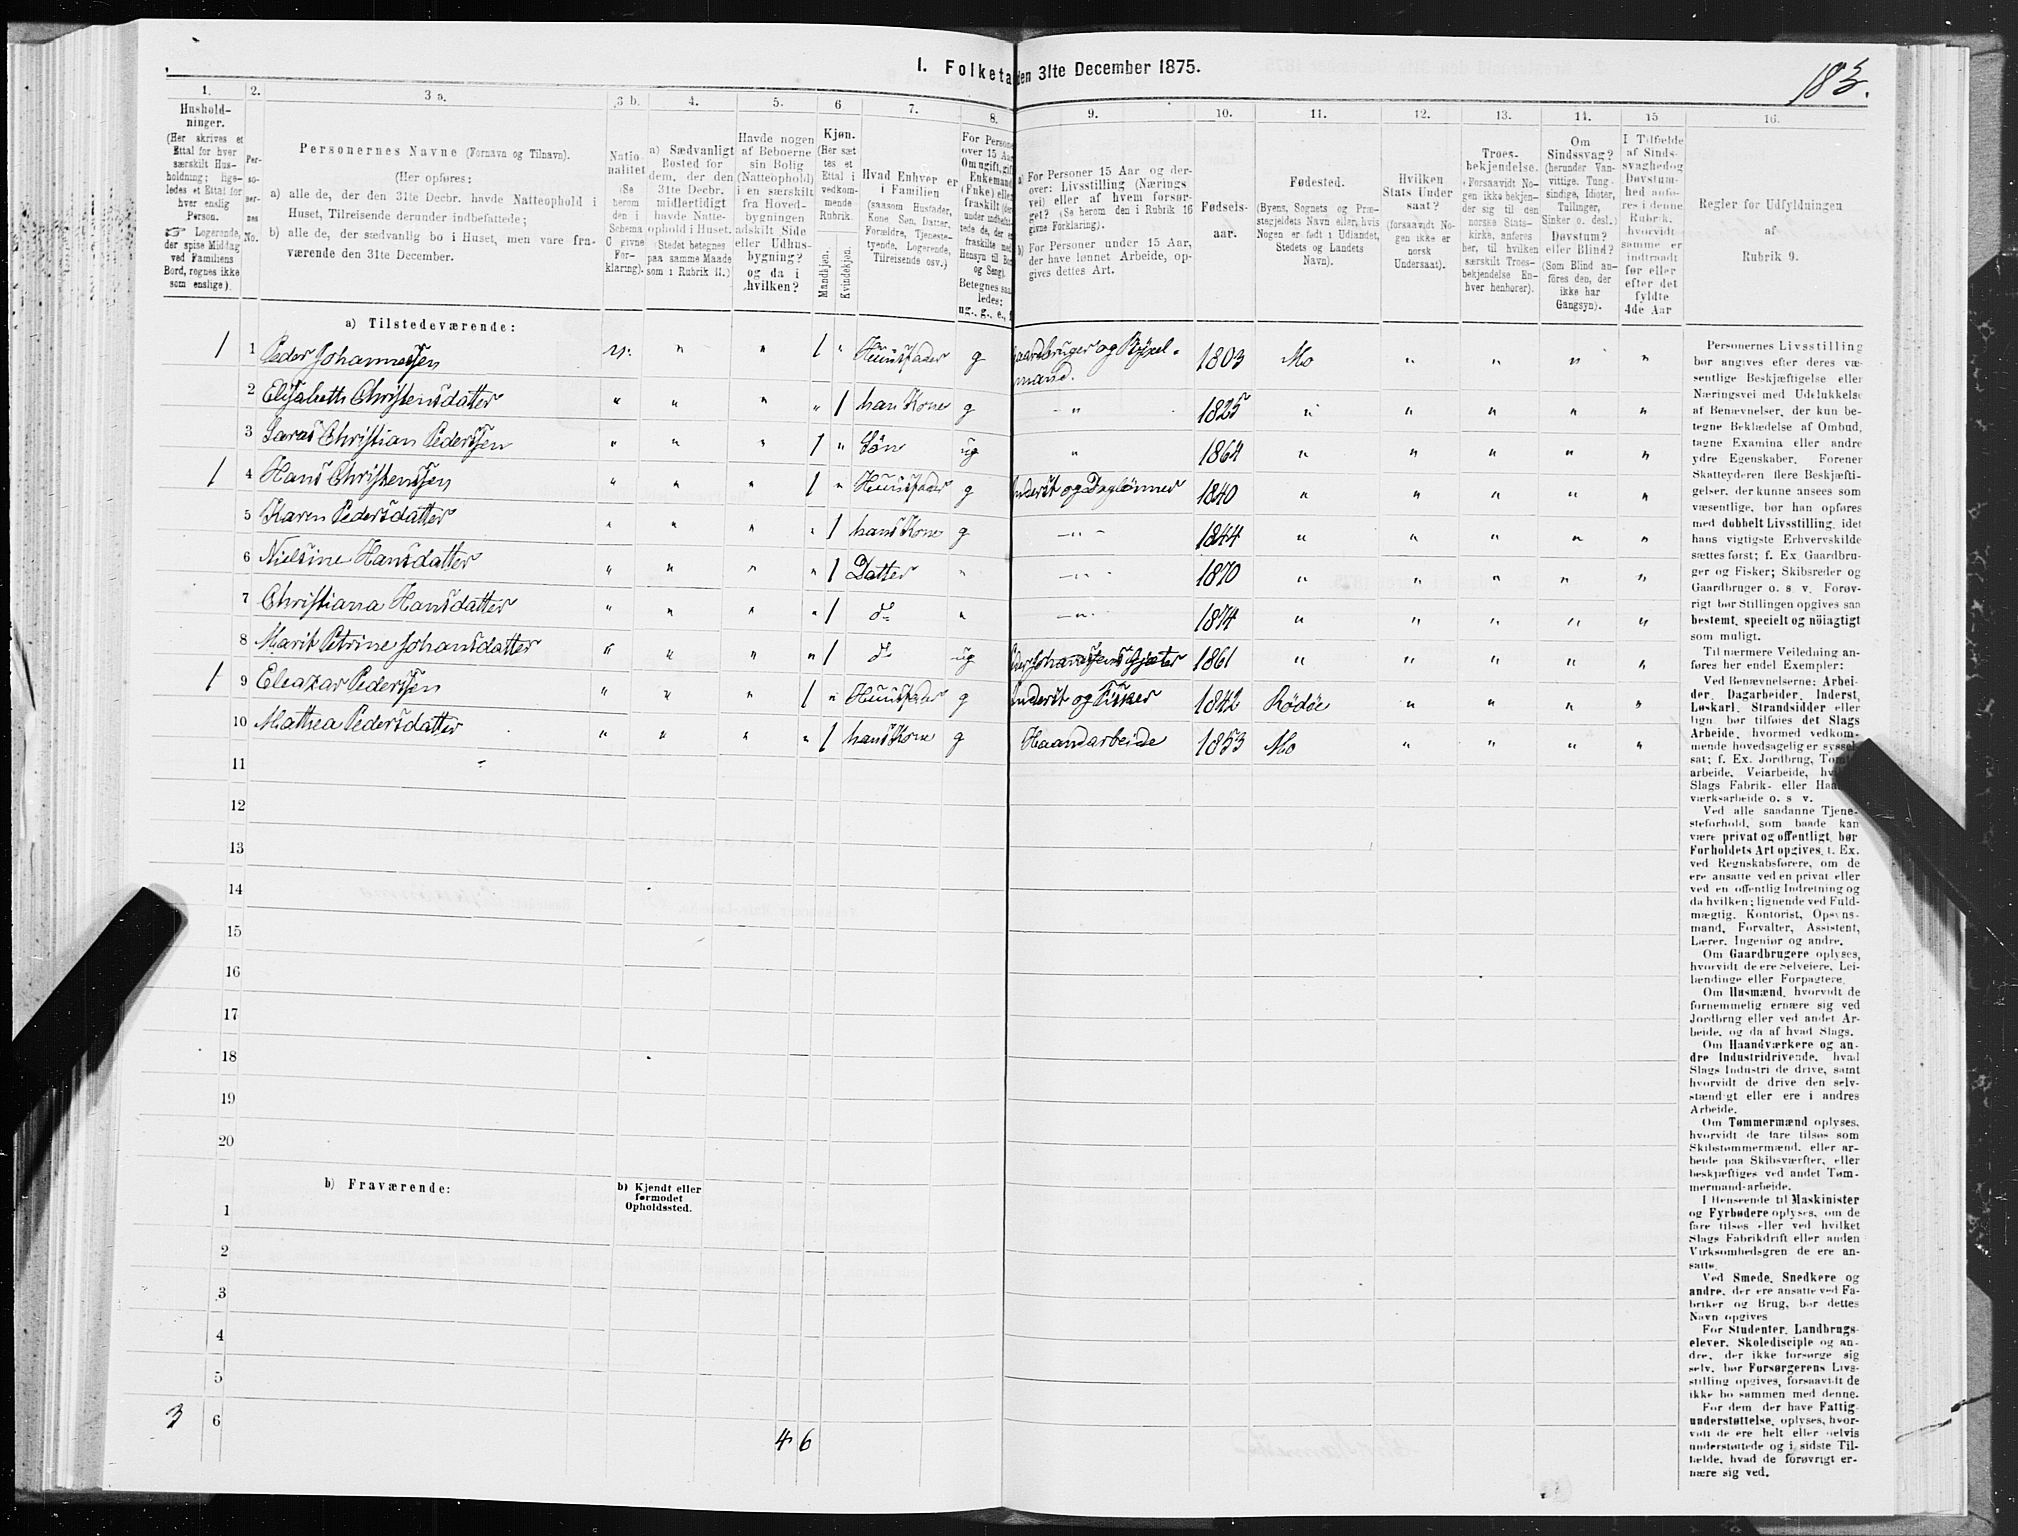 I. Folketa
den 31te December 1875.
183.
1.
2.
3 a.
3 b.
4.
5.
6
7.
8.
9.
10.
11.
12.
13.
14.
15
16.
Hushold-
ninger.
(Her skrives et
Ettal for hver
særskilt Hus-
holdning; lige-
ledes et Ettal for
hver enslig
Person.
☞ Logerende,
der spise Middag
ved Familiens
Bord, regnes ikke
som enslige).
Per-
so-
ner-
nes
No.
Personernes Navne (Fornavn og Tilnavn).
(Her opføres:
a) alle de, der den 31te Decbr. havde Natteophold i
Huset, Tilreisende derunder indbefattede;
b) alle de, der sædvanlig bo i Huset, men vare fra-
værende den 31te December.
Natio-
nalitet
(Se
herom
den i
Schema
C givne
For-
klaring).
a) Sædvanligt
Bosted for
dem, der den
31te Decbr.
midlertidigt
havde Natte-
ophold i Huset.
(Stedet betegnes
paa samme Maade
som i Rubrik 11.)
Havde nogen
af Beboerne
sin Bolig
(Natteophold)
i en særskilt
fra Hoved-
bygningen
adskilt Side
eller Udhus-
bygning?
og da i
hvilken?
Kjøn.
(Her sæt
tes et
Ettal i
vedkom-
mende
Rubrik.
Mandkjøn.
Kvindekjøn.
Hvad Enhver er
i Familien
(saasom Husfader,
Kone Søn, Datter,
Forældre, Tjeneste-
tyende, Logerende,
Tilreisende osv.)
For Persone
over 15 Aa
Om ugift, gif
Enkemand
(Enke) elle
fraskilt (de
under indbef
tede de, der e
fraskilte me
Hensyn til Bo
og Seng).
Betegnes saa
ledes:
ug., g., e., f
a) For Personer 15 Aar og der-
over: Livsstilling (Nærings
vei) eller af hvem forsør-
get? (Se herom den i Rubrik 16
givne Forklaring).
b) For Personer under 15 Aar,
der have lønnet Arbeide, op-
gives dettes Art.
Fødsels-
aar.
Fødested.
(Byens, Sognets og Præ-
stegjeldets Navn eller, hvis
Nogen er født i Udlandet,
Stedets og Landets
Navn).
Hvilken
Stats Under
saat?
(forsaavidt No-
gen ikke er
norsk
Undersaat).
Troes-
bekjendelse.
(Forsaavidt No-
gen ikke bekjen-
der sig til den
norske Stats-
kirke, anføres
her, til hvilken
særskilt Troes-
bekjendelse En-
hver henhører).
Om
Sindssvag?
(herunder Van-
vittige, Tung-
sindige, Idioter,
Tullinger,
Sinker o. desl.)
Døvstum?
eller Blind?
(Som Blind an-
føres den, der
ikke har
Gangsyn).
I Tilfælde
af Sinds-
svaghed og
Døvstum-
hed anfø-
res i denne
Rubrik,
hvorvidt
samme er
indtraadt
før eller
efter det
fyldte
4de Aar
Regler for Udfyldningen
af
Rubrik 9.
a) Tilstedeværende:
1 1 Peder Johannessen n. " " 1 " Huusfader g Gaardbruger og Røxel-
mand. 1803 Mo " " " "
2 Elisabeth Christensdatter " " " " 1 han Kone g " 1825 " " " " "
3 Laras Christian Pederssen " " " 1 " Søn ug " 1864 " " " " "
1 4 Hans Christenssen " " " 1 " Huusfader g Inderst og Daglønner 1840 " " " " "
5 Karen Pedersdatter " " " " 1 hans Kone g " 1844 " " " " "
6 Nielsine Hansdatter " " " " 1 Datter " " 1870 " " " " "
7 Christiana Hansdatter " " " " 1 do " " 1874 " " " " "
8 Marit Petrine Johansdatter " " " " 1 do ug Peder Johannessens Gjæter 1861 " " " " "
1 9 Eleazar Pederssen " " " 1 " Huusfader g Inderst og Fisker 1842 Rödöe " " " "
10 Mathea Pedersdatter " " " " 1 hans Kone g Haandarbeide 1853 Mo " " " "
11
12
13
14
15
16
17
18
19
20
b) Fraværende:
b) Kjendt eller
formodet
Opholdssted.
1
2
3
4
5
3 6
4 6
Personernes Livsstilling
bør angives efter deres væ-
sentlige Beskjæftigelse eller
Næringsvei med Udelukkelse
af Benævnelser, der kun be-
tegne Beklædelse af Ombud,
tagne Examina eller andre
ydre Egenskaber. Forener
Skatteyderen flere Beskjæfti-
gelser, der kunne ansees som
væsentlige, bør han opføres
med dobbelt Livsstilling, idet
hans vigtigste Erhvervskilde
sættes først; f. Ex Gaardbru-
ger og Fisker; Skibsreder og
Gaardbruger o. s. v. Forøv-
rigt bør Stillingen opgives saa
bestemt, specielt og nöiagtigt
som muligt.
Til nærmere Veiledning an-
føres her endel Exempler:
Ved Benævnelserne: Arbei-
der, Dagarbeider, Inderst,
Løskarl, Strandsidder eller
lign. bør tilføies det Slags
Arbeide, hvormed vedkom-
mende hovedsagelig er syssel-
sat; f. Ex. Jordbrug, Tom
arbeide, Veiarbeide, hv
Slags Fabrik- eller Haa
værksarbeide o. s v.
Ved alle saadanne Tjene-
steforhold, som baade kan
være privat og offentligt, bør
Forholdets Art opgives, t. Ex.
ved Regnskabsførere, om de
ere ansatte ved en privat eller
ved en offentlig Indretning og
da hvilken; lignende ved Fuld-
mægtig, Kontorist, Opsyns-
mand, Forvalter, Assistent,
Lærer, Ingeniør og andre.
Om Gaardbrugere oplyses,
hvorvidt de ere Selveiere, Lei-
lændinge eller Forpagtere.
Om Husmænd, hvorvidt de
fornemmelig ernære sig ved
Jordbrug eller ved andet Ar-
beide, og da af hvad Slags.
Om Haandværkere og an-
dre Industridrivende, hvad
Slags Industri de drive, samt
hvorvidt de drive den selv-
stændigt eller ere i andres
Arbeide.
Om Tømmermænd oplyses,
hvorvidt de fare tilsøs som
Skibstømmermænd, eller ar-
beide paa Skibsværfter, eller
beskjæftiges ved andet Tøm-
mermandsarbeide.
I Henseende til Maskinister
og Fyrbødere oplyses, om de
fare tilsøs eller ved hvilket
Slags Fabrikdrift eller anden
Virksomhedsgren de ere an-
satte.
Ved Smede, Snedkere og
andre, der ere ansatte ved Fa-
briker og Brug, bør dettes
Navn opgives
For Studenter, Landbrugs-
elever, Skoledisciple og an-
dre, der ikke forsørge sig
selv, bør Forsørgerens Livs-
stilling opgives, forsaavidt de
ikke bo sammen med denne.
For dem, der have Fattig-
understøttelse, oplyses, hvor-
vidt de ere helt eller delvis
understøttede og i sidste Til-
fælde, hvad de forøvrigt er-
nære sig ved.